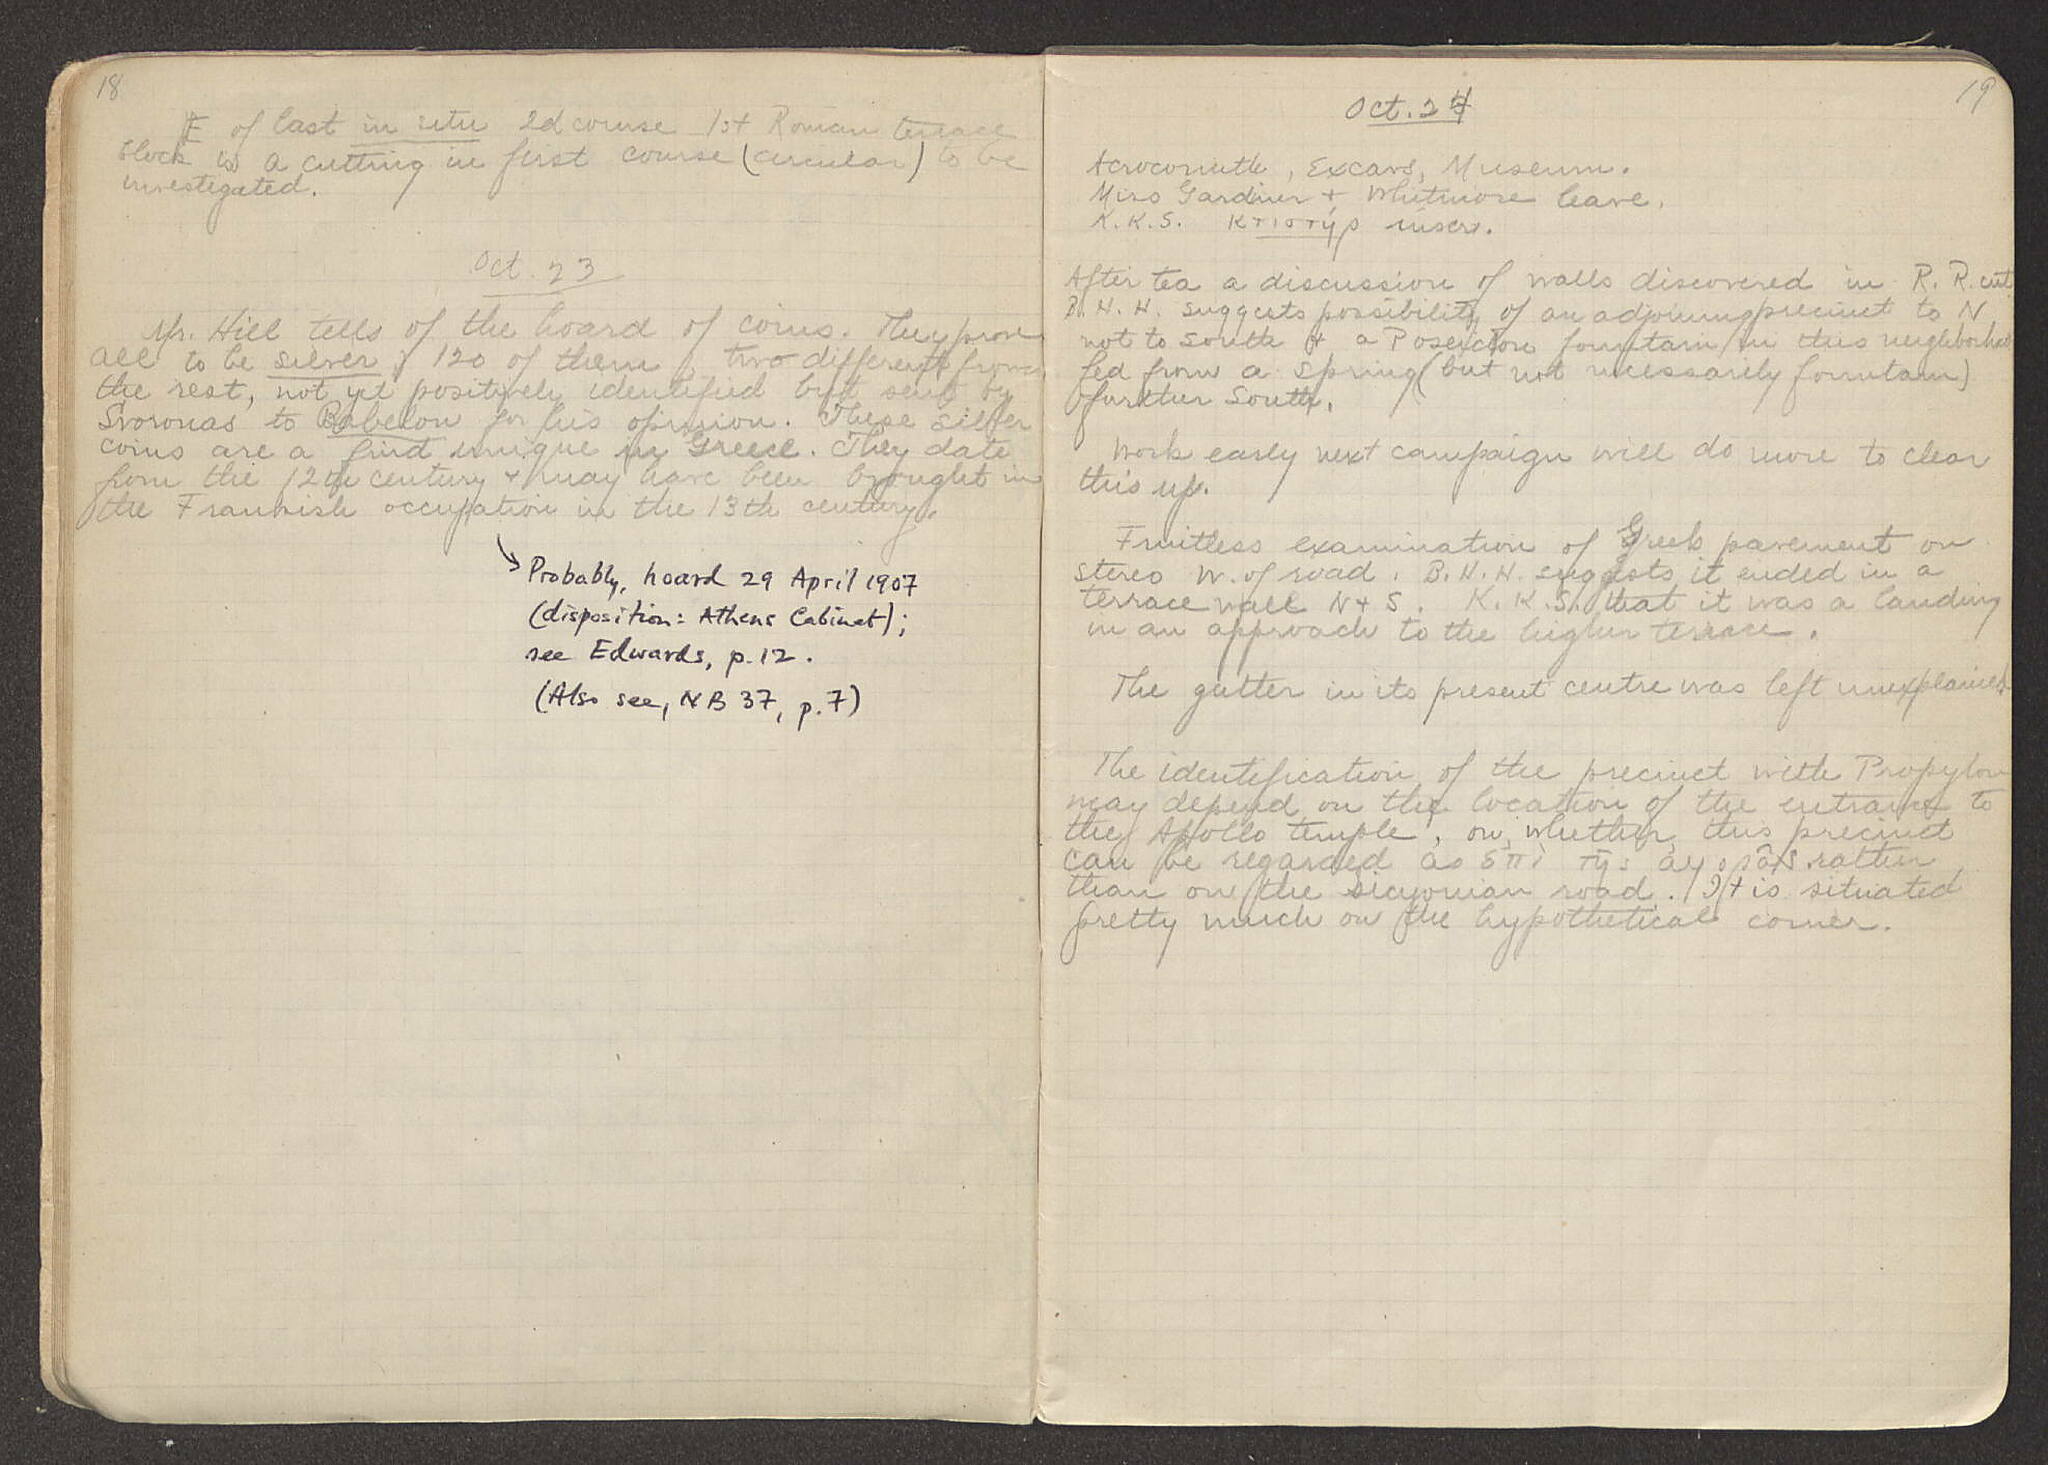 18
E of last in situ 2d course 1st Roman terrace
block is a cutting in first course (circular) to be
investigated.
Oct. 23
Mr. Hill tells of the hoard of coins. They prove
all to be silver, 120 of them, two different from
the rest, not yet positively identified but sent by
Svoronas to Babelon for his opinion. These silver
coins are a find unique in Greece. They date
from the 12th century + may have been brought in
the Frankish occupation in the 13th century.
Probably, hoard 29 April 1907
(disposition: Athens Cabinet);
see Edwards, p.12.
(Also see, NB 37, p.7)
19
Oct. 24
Acrocorinth, Excavs, Museum.
Miss Gardiner + Whitmore leave.
K.K.S. κτιστήρ inscr.
After tea a discussion of walls discovered in R.R. cut
B.H.H. suggests possibility of an adjoining precinct to N
not to South + a Poseidon fountain in this neighborhood
fed from a spring (but not necessarily fountain)
further South.
Work early next campaign will do more to clear
this up.
Fruitless examination of Greek pavement on
stereo W. of road. B.H.H. suggests it ended in a
terrace wall N + S. K.K.S. that it was a landing
in an approach to the higher terrace.
The gutter in its present centre was left unexplained
The identification of the precinct with Propylon
may depend on the location of the entrance to
the Apollo temple, on whether this precinct
can be regarded as ἐπὶ τῆς ἀγορᾶς rather
than on the Sicyonian road. It is situated
pretty much on the hypothetical corner.